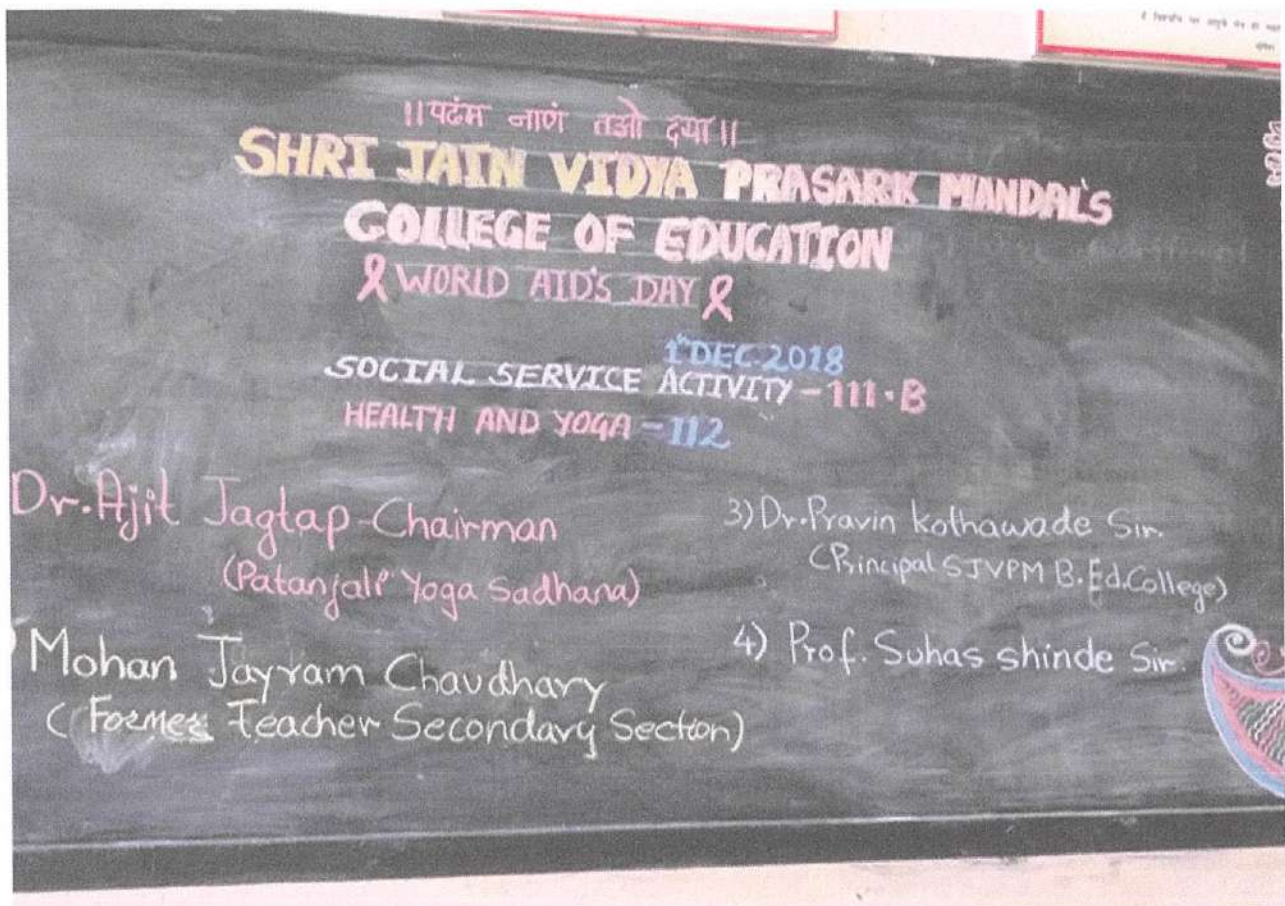 ॥पढंम नाणं तओ दया॥
SHRI JAIN VIDYA PRASARK MANDAL'S
COLLEGE OF EDUCATION
WORLD AID'S DAY
1st DEC. 2018
SOCIAL SERVICE ACTIVITY - 111.B
HEALTH AND YOGA - 112
Dr. Ajit Jagtap Chairman
(Patanjali Yoga Sadhana)
) Mohan Jayram Chaudhary
(Former Teacher Secondary Section)
3) Dr. Pravin kothawade Sir.
(Principal SJVPM B.Ed.College)
4) Prof. Suhas shinde Sir.